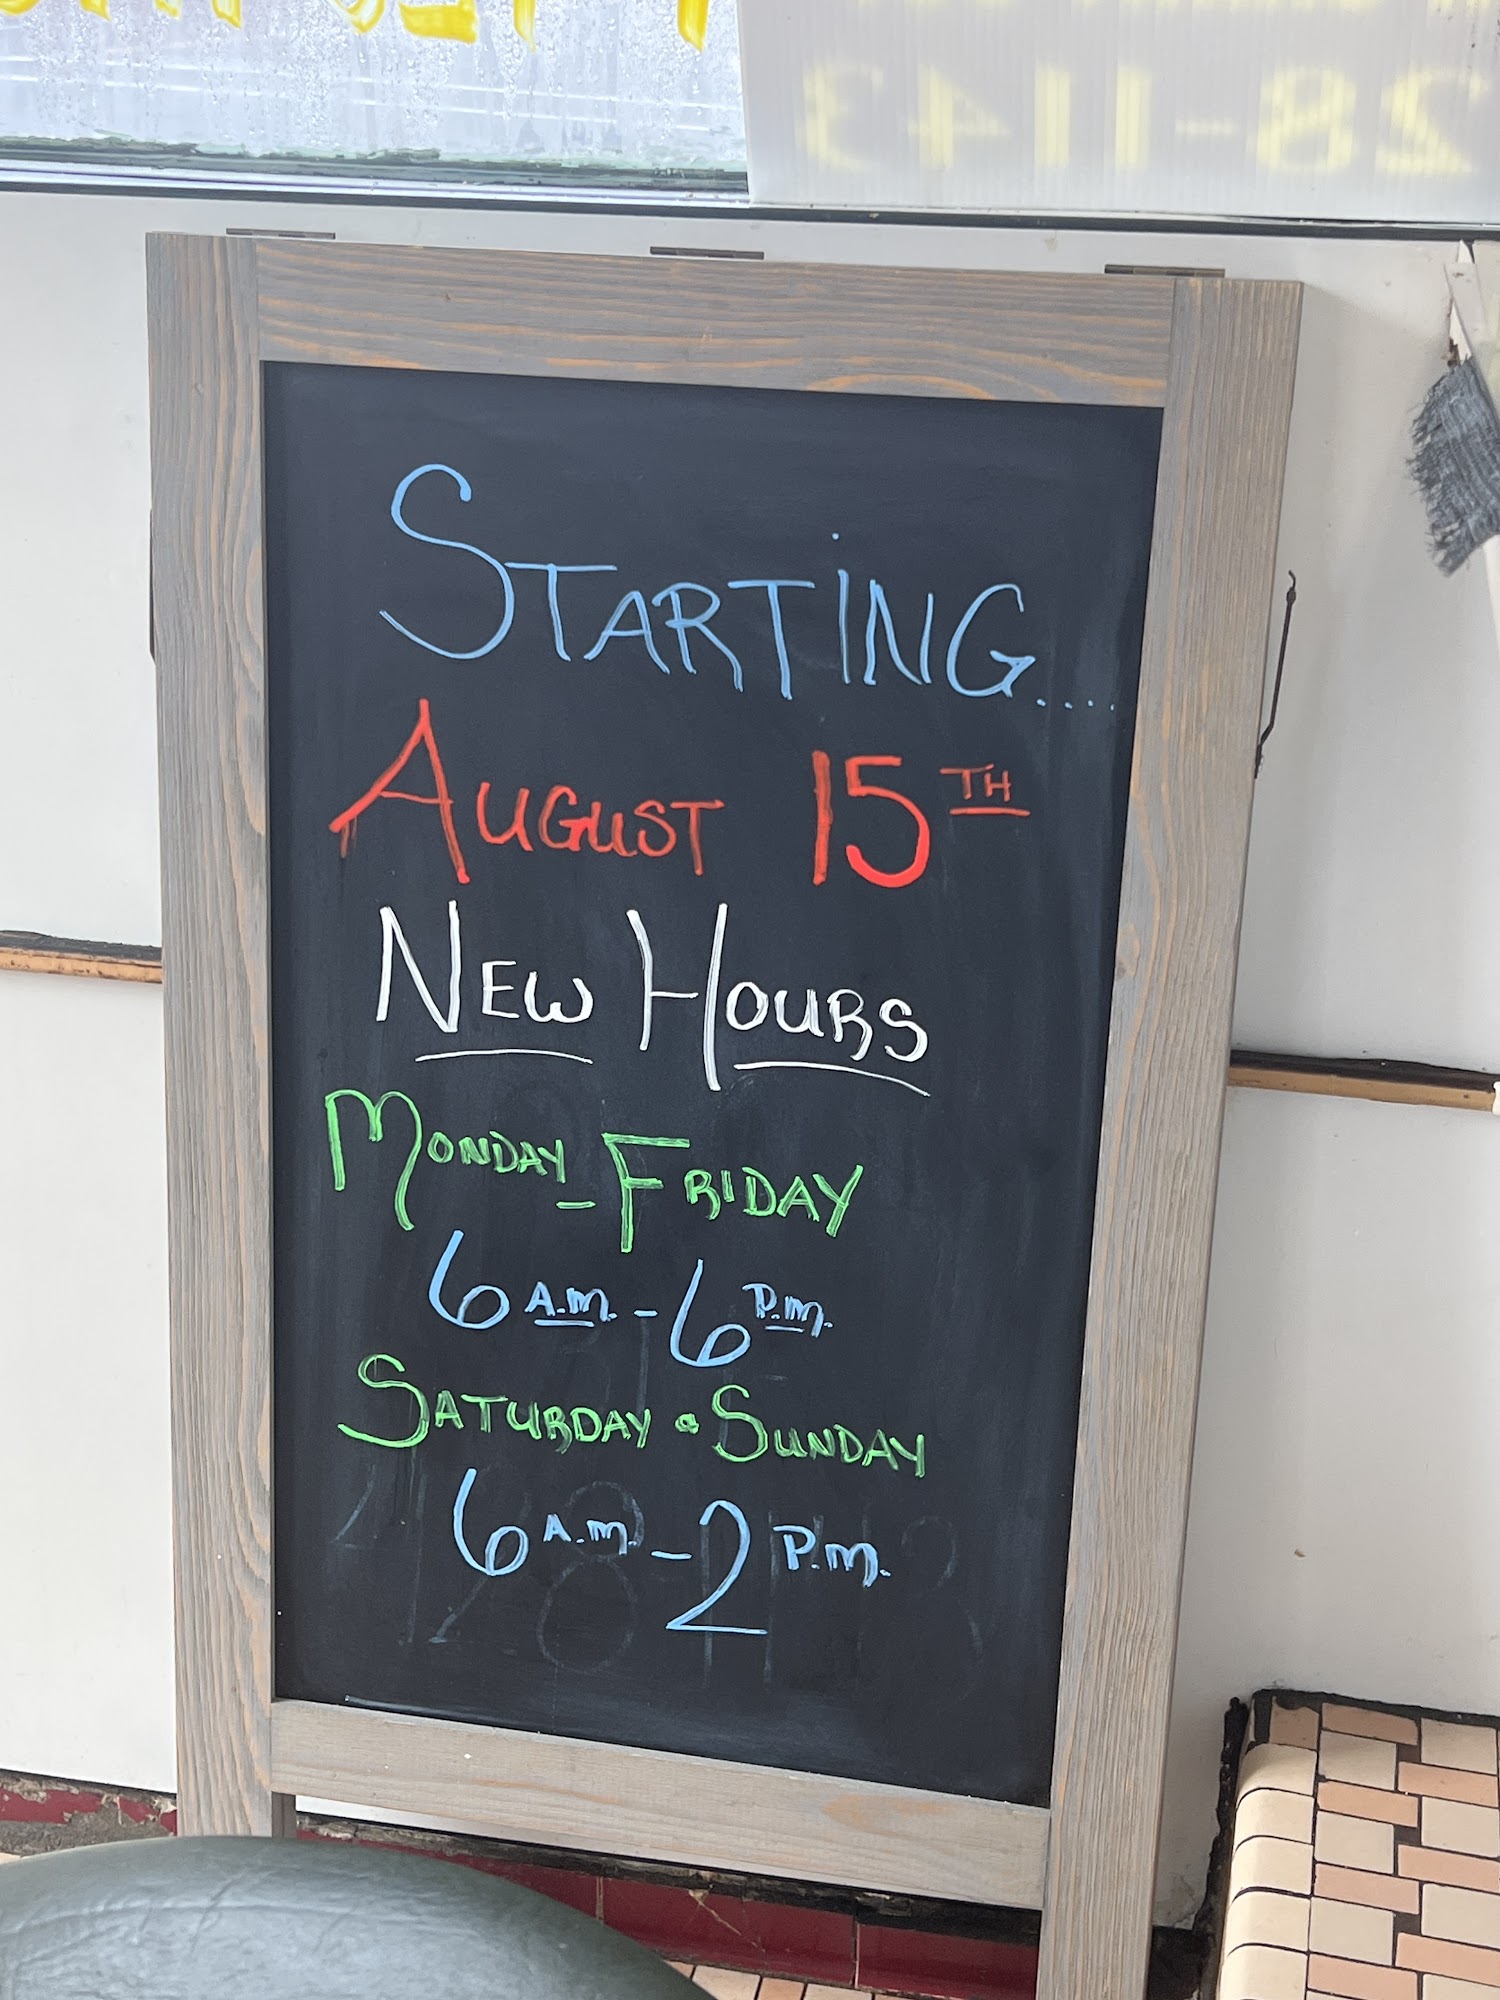 28-1143
STARTING....
AUGUST 15TH
NEW HOURS
MONDAY - FRIDAY
6 A.M. - 6 P.M.
SATURDAY • SUNDAY
6 A.M. - 2 P.M.